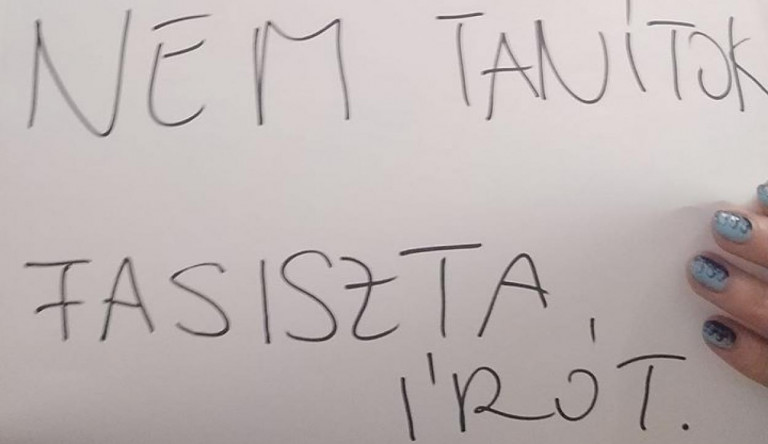 NEM TANÍTOK
FASISZTA
ÍRÓT.